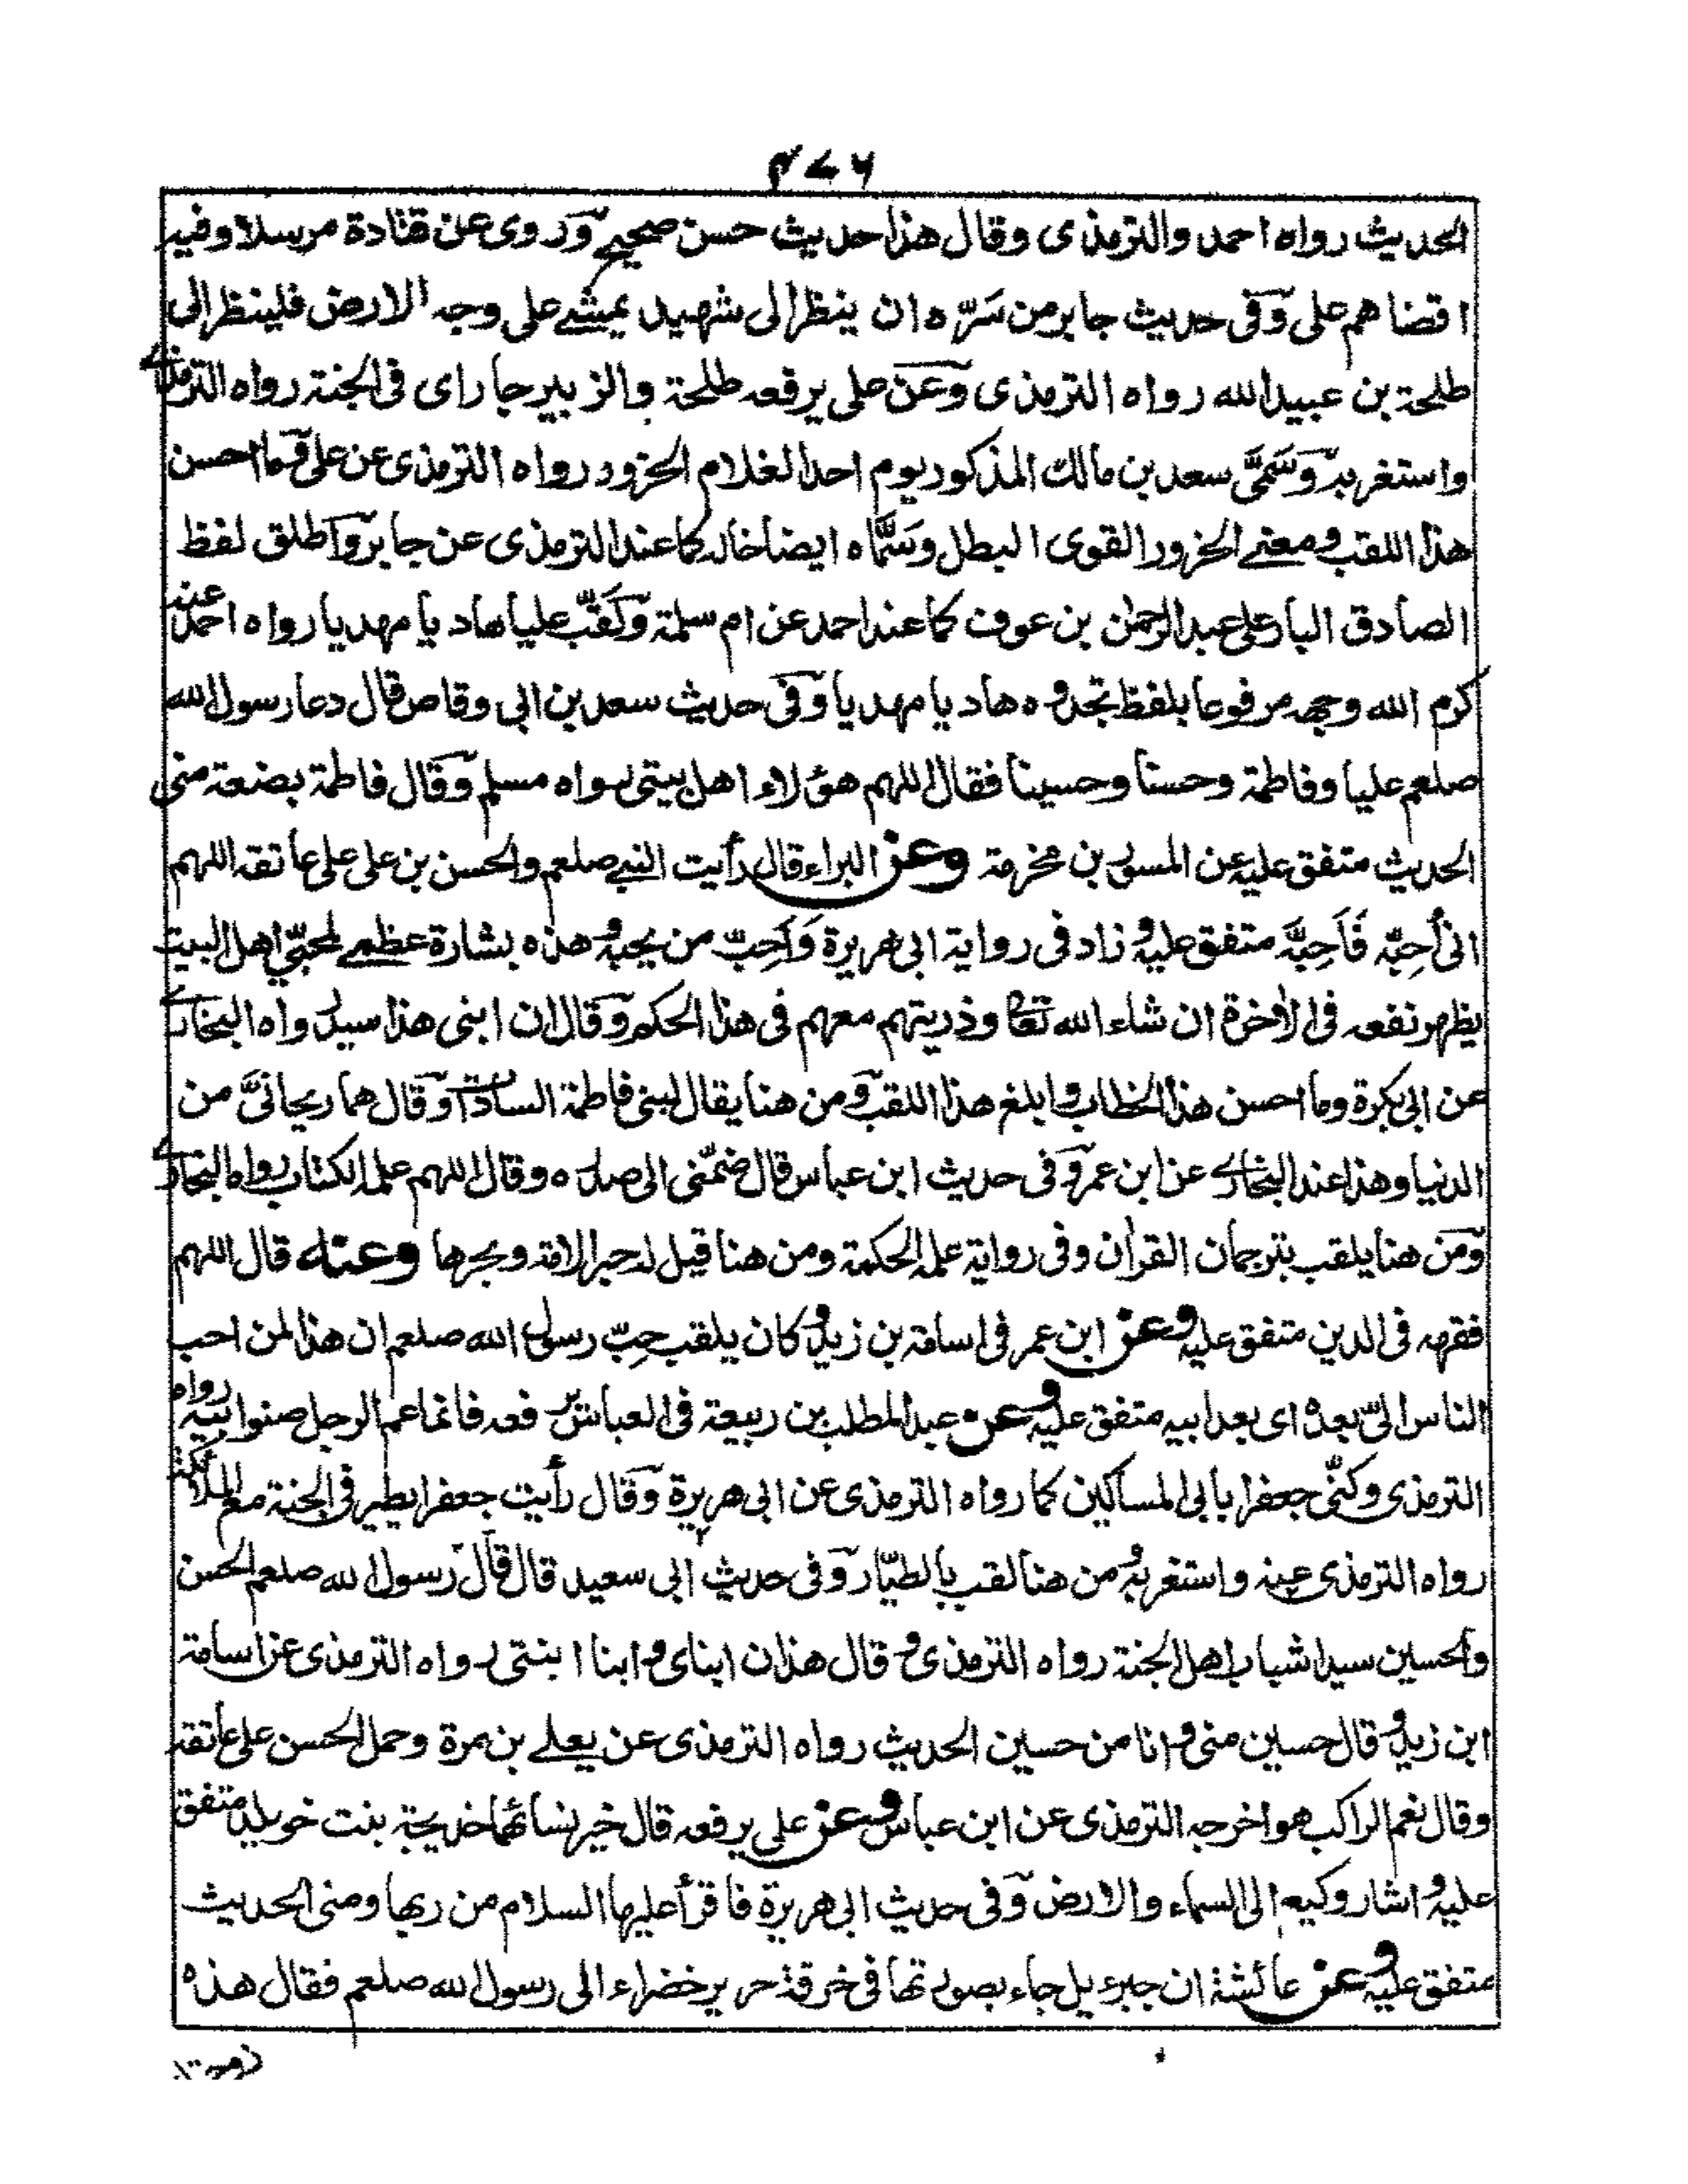 ٤٧٦
الحديث رواه احمد والترمذى وقال هذا حديث حسن صحيح وروى عن قتادة مرسلا وفيه
اقضاهم على وفى حديث جابر من سَرّه ان ينظر الى شهيد يمشے على وجه الارض فلينظر الى
طلحة بن عبيد الله رواه الترمذى وعن على يرفعه طلحة والزبير جاراى فى الجنة رواه الترمذے
واستغربه وسَمَّى سعد بن مالك المذكور يوم احد الغلام الحزور رواه الترمذى عن على وما احسن
هذا اللقب ومعنے الحزور القوى البطل وسَمَّاه ايضا خاله كما عند الترمذى عن جابر واطلق لفظ
الصادق البار على عبد الرحمٰن بن عوف كما عند احمد عن ام سلمة ولَقَّب عليا هاديا مهديا رواه احمد عنه
كرم الله وجهه مرفوعا بلفظ تجدوه هاديا مهديا وفى حديث سعد بن ابى وقاص قال دعا رسول الله
صلعم عليا وفاطمة وحسنا وحسينا فقال اللهم هؤلاء اهل بيتى رواه مسلم وقال فاطمة بضعة منى
الحديث متفق عليه عن المسور بن مخرمة وعن البراء قال رأيت النبے صلعم والحسن بن على على عاتقه اللهم
انى أُحِبّه فَاَحِبَّه متفق عليه وزاد فى رواية ابى هريرة وَاَحِبّ من يحبه وهذه بشارة عظمے لمحبّى اهل البيت
يظهر نفعه فى الاٰخرة ان شاء الله تعالى وذريتهم معهم فى هذا الحكم وقال ان ابنى هذا سيد رواه البخارے
عن ابى بكرة وما احسن هذا الخطاب وابلغ هذا اللقب ومن هنا يقال لبنى فاطمة السادات وقال هما ريحانىَّ من
الدنيا وهذا عند البخارے عن ابن عمر وفى حديث ابن عباس قال ضمّنى الى صدره وقال اللهم علمه الكتاب رواه البخارے
ومن هنا يلقب بترجمان القراٰن وفى رواية علمه الحكمة ومن هنا قيل له حبر الامة وبحرها وعنه قال اللهم
فقهه فى الدين متفق عليه وعن ابن عمر فى اسامة بن زيد وكان يلقب حِبّ رسول الله صلعم ان هذا لمن احب
الناس الىّ بعده اى بعد ابيه متفق عليه وعن عبد المطلب بن ربيعة فى العباس يرفعه فانما عم الرجل صنو ابيه رواه
الترمذى وكنّى جعفرا بابى المساكين كما رواه الترمذى عن ابى هريرة وقال رأيت جعفرا يطير فى الجنة مع الملائكة
رواه الترمذى عنه واستغربه ومن هنا لقب بالطيّار وفى حديث ابى سعيد قال قال رسول الله صلعم الحسن
والحسين سيدا شباب اهل الجنة رواه الترمذى وقال هذان ابناى وابنا ابنتى رواه الترمذى عن اسامة
ابن زيد وقال حسين منى وانا من حسين الحديث رواه الترمذى عن يعلے بن مرة وحمل الحسن على عاتقه
وقال نعم الراكب هو اخرجه الترمذى عن ابن عباس وعن على يرفعه قال خير نسائها خديجة بنت خويلد متفق
عليه واشار وكيع الى السماء والارض وفى حديث ابى هريرة فاقرأ عليها السلام من ربها ومنى الحديث
متفق عليه وعن عائشة ان جبرءيل جاء بصورتها فى خرقة حرير خضراء الى رسول الله صلعم فقال هذه
زوجتك